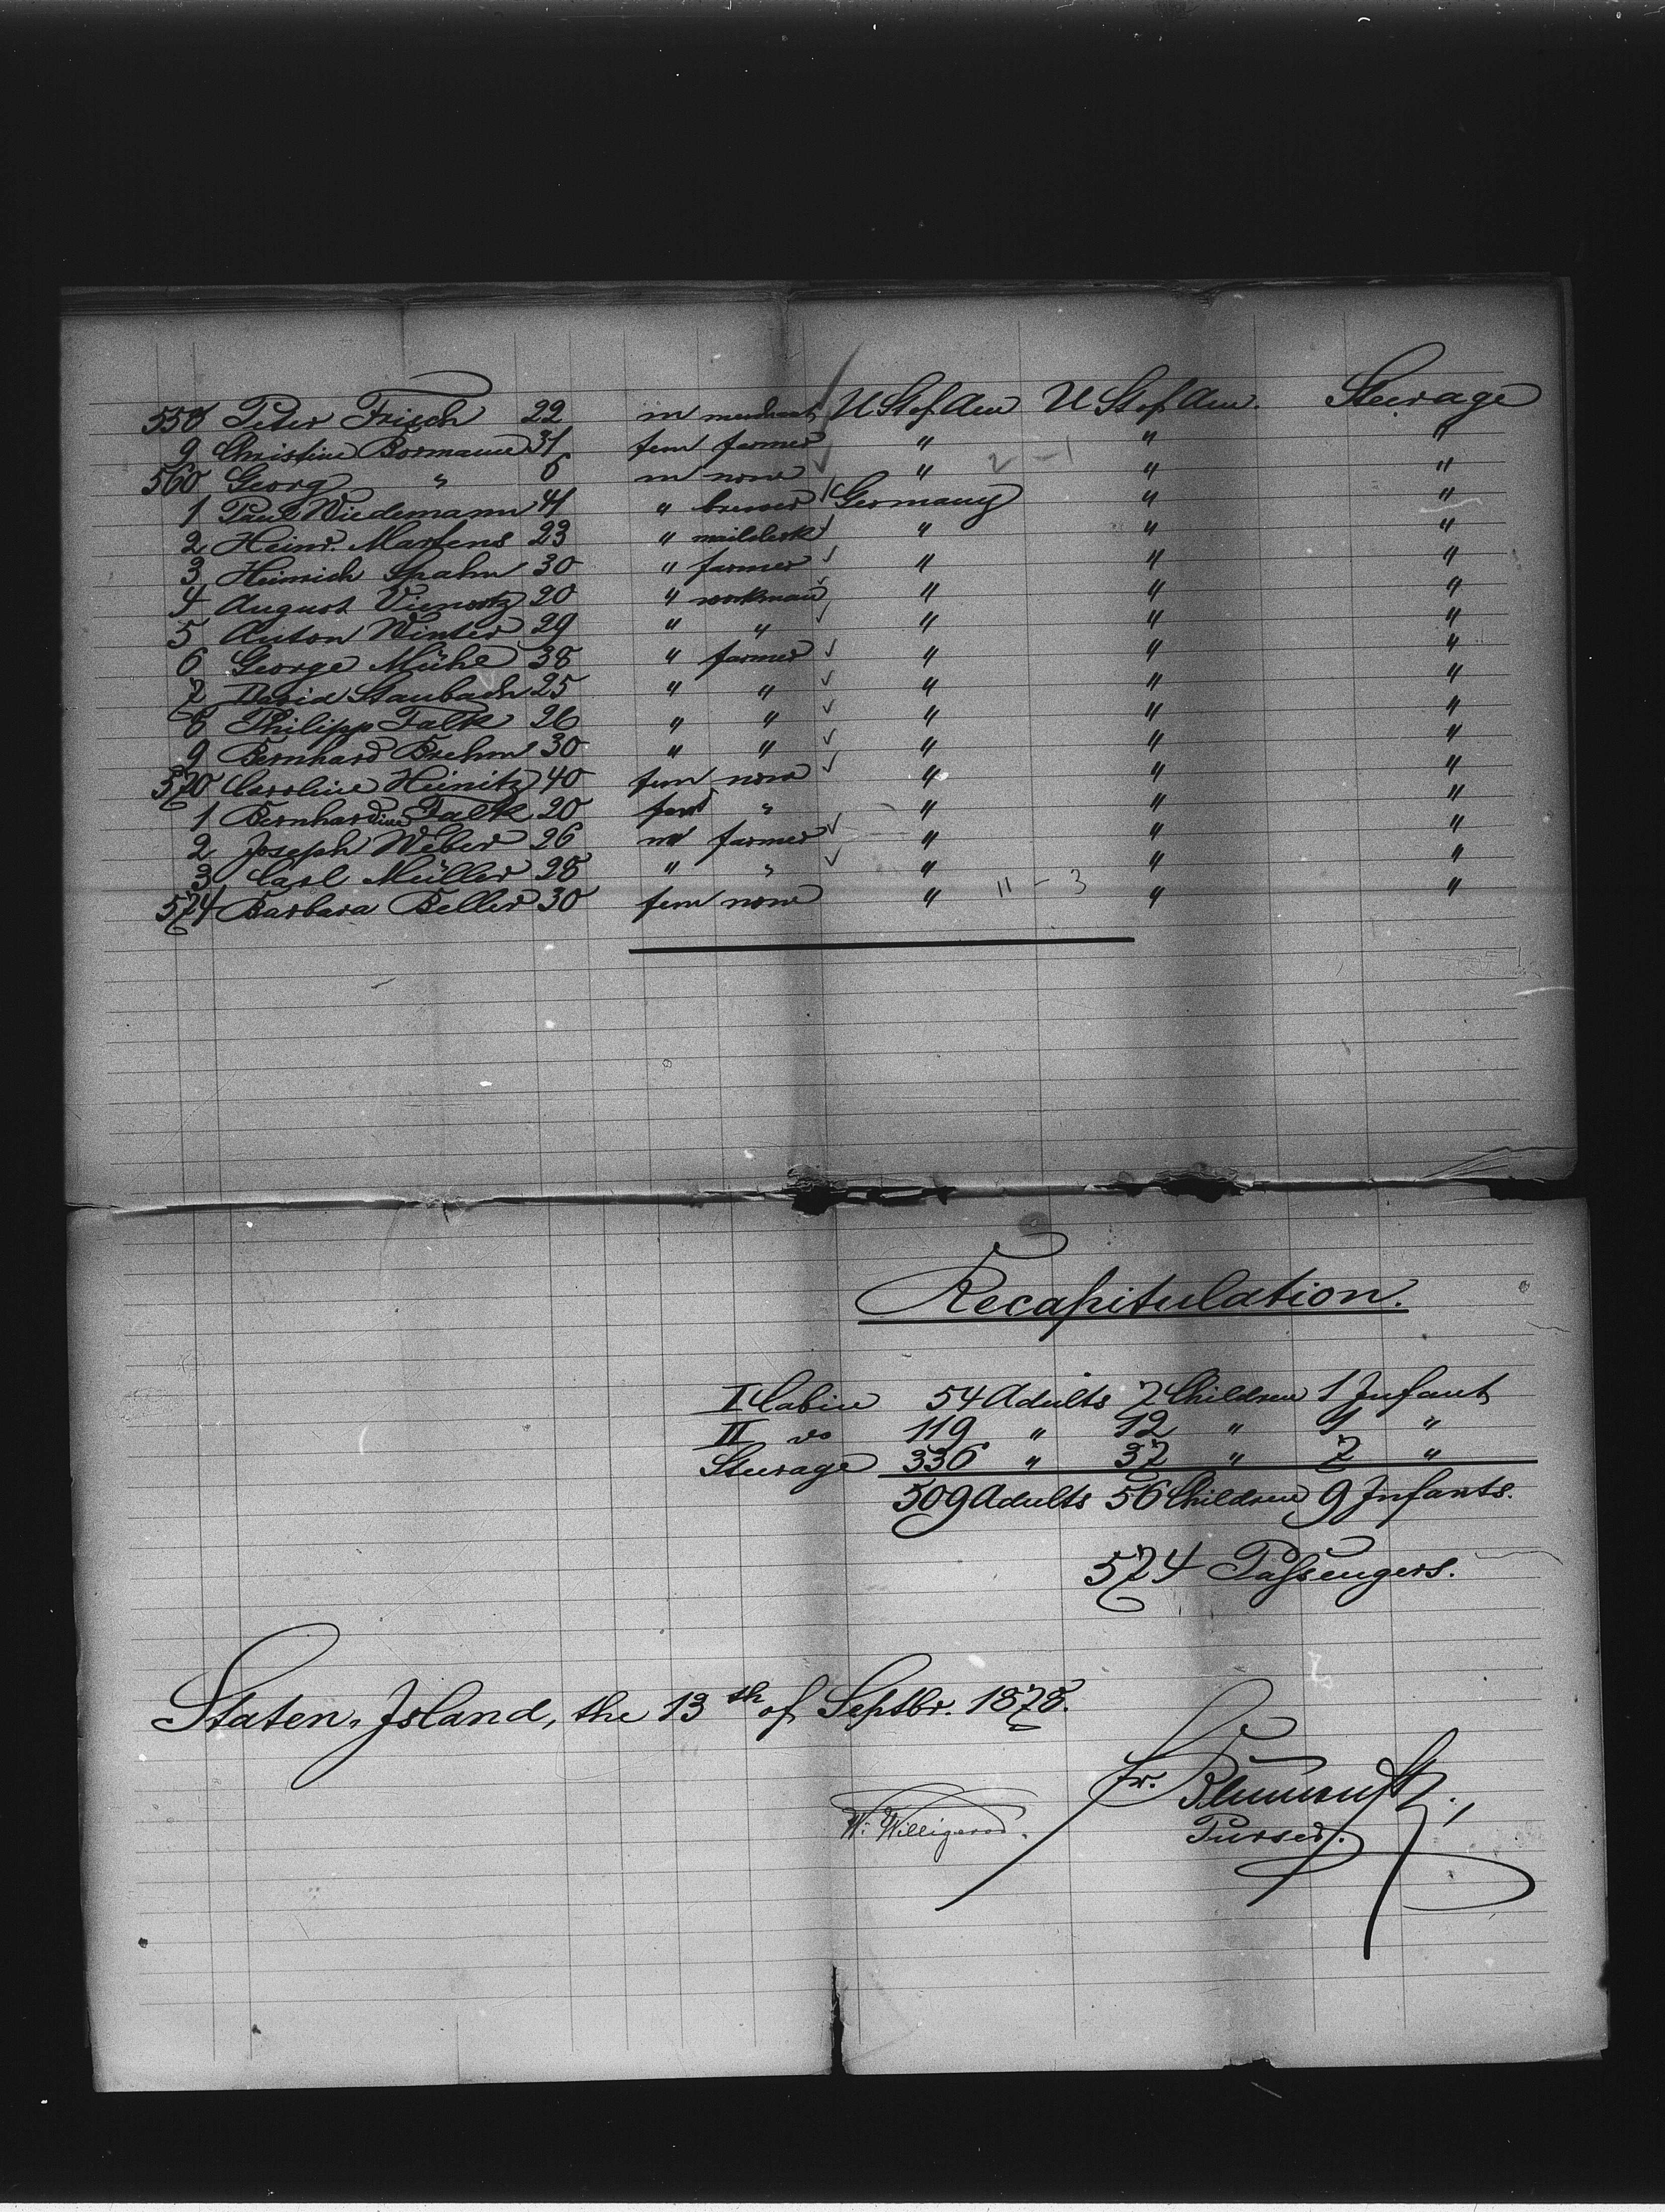 558 Peter Frisch 22 m merchant U St of Am U St of Am. Steerage
9 Christine Bormann 31 fem farmer " " "
560 Georg " 6 m none " 2 - 1 " "
1 Paul Wiedemann 41 " brewer Germany " "
2 Heinr. Martens 23 " mailclerk " " "
3 Heinrich Spahn 30 " farmer " " "
4 August 20 " workman " " "
5 Anton Winter 29 " " " " "
6 George Mühe 38 " farmer " " "
7 David Staubach 25 " " " " "
8 Philipp Falk 26 " " " " "
9 Bernhard Brehm 30 " " " " "
570 Caroline Heinitz 40 fem none " " "
1 Bernhardine Falk 20 fem " " " "
2 Joseph Weber 26 m farmer " " "
3 Carl Müller 28 " " " " "
574 Barbara Beller 30 fem none " 11 - 3 " "
Recapitulation.
I Cabin 54 Adults 7 Children 1 Infant
II do 119 " 12 " 1 "
Steerage 336 " 37 " 7 "
509 Adults 56 Children 9 Infants.
574 Passengers.
Staten, Island, the 13th of Septbr. 1878.
Fr.
W. Willigerod.
Purser.